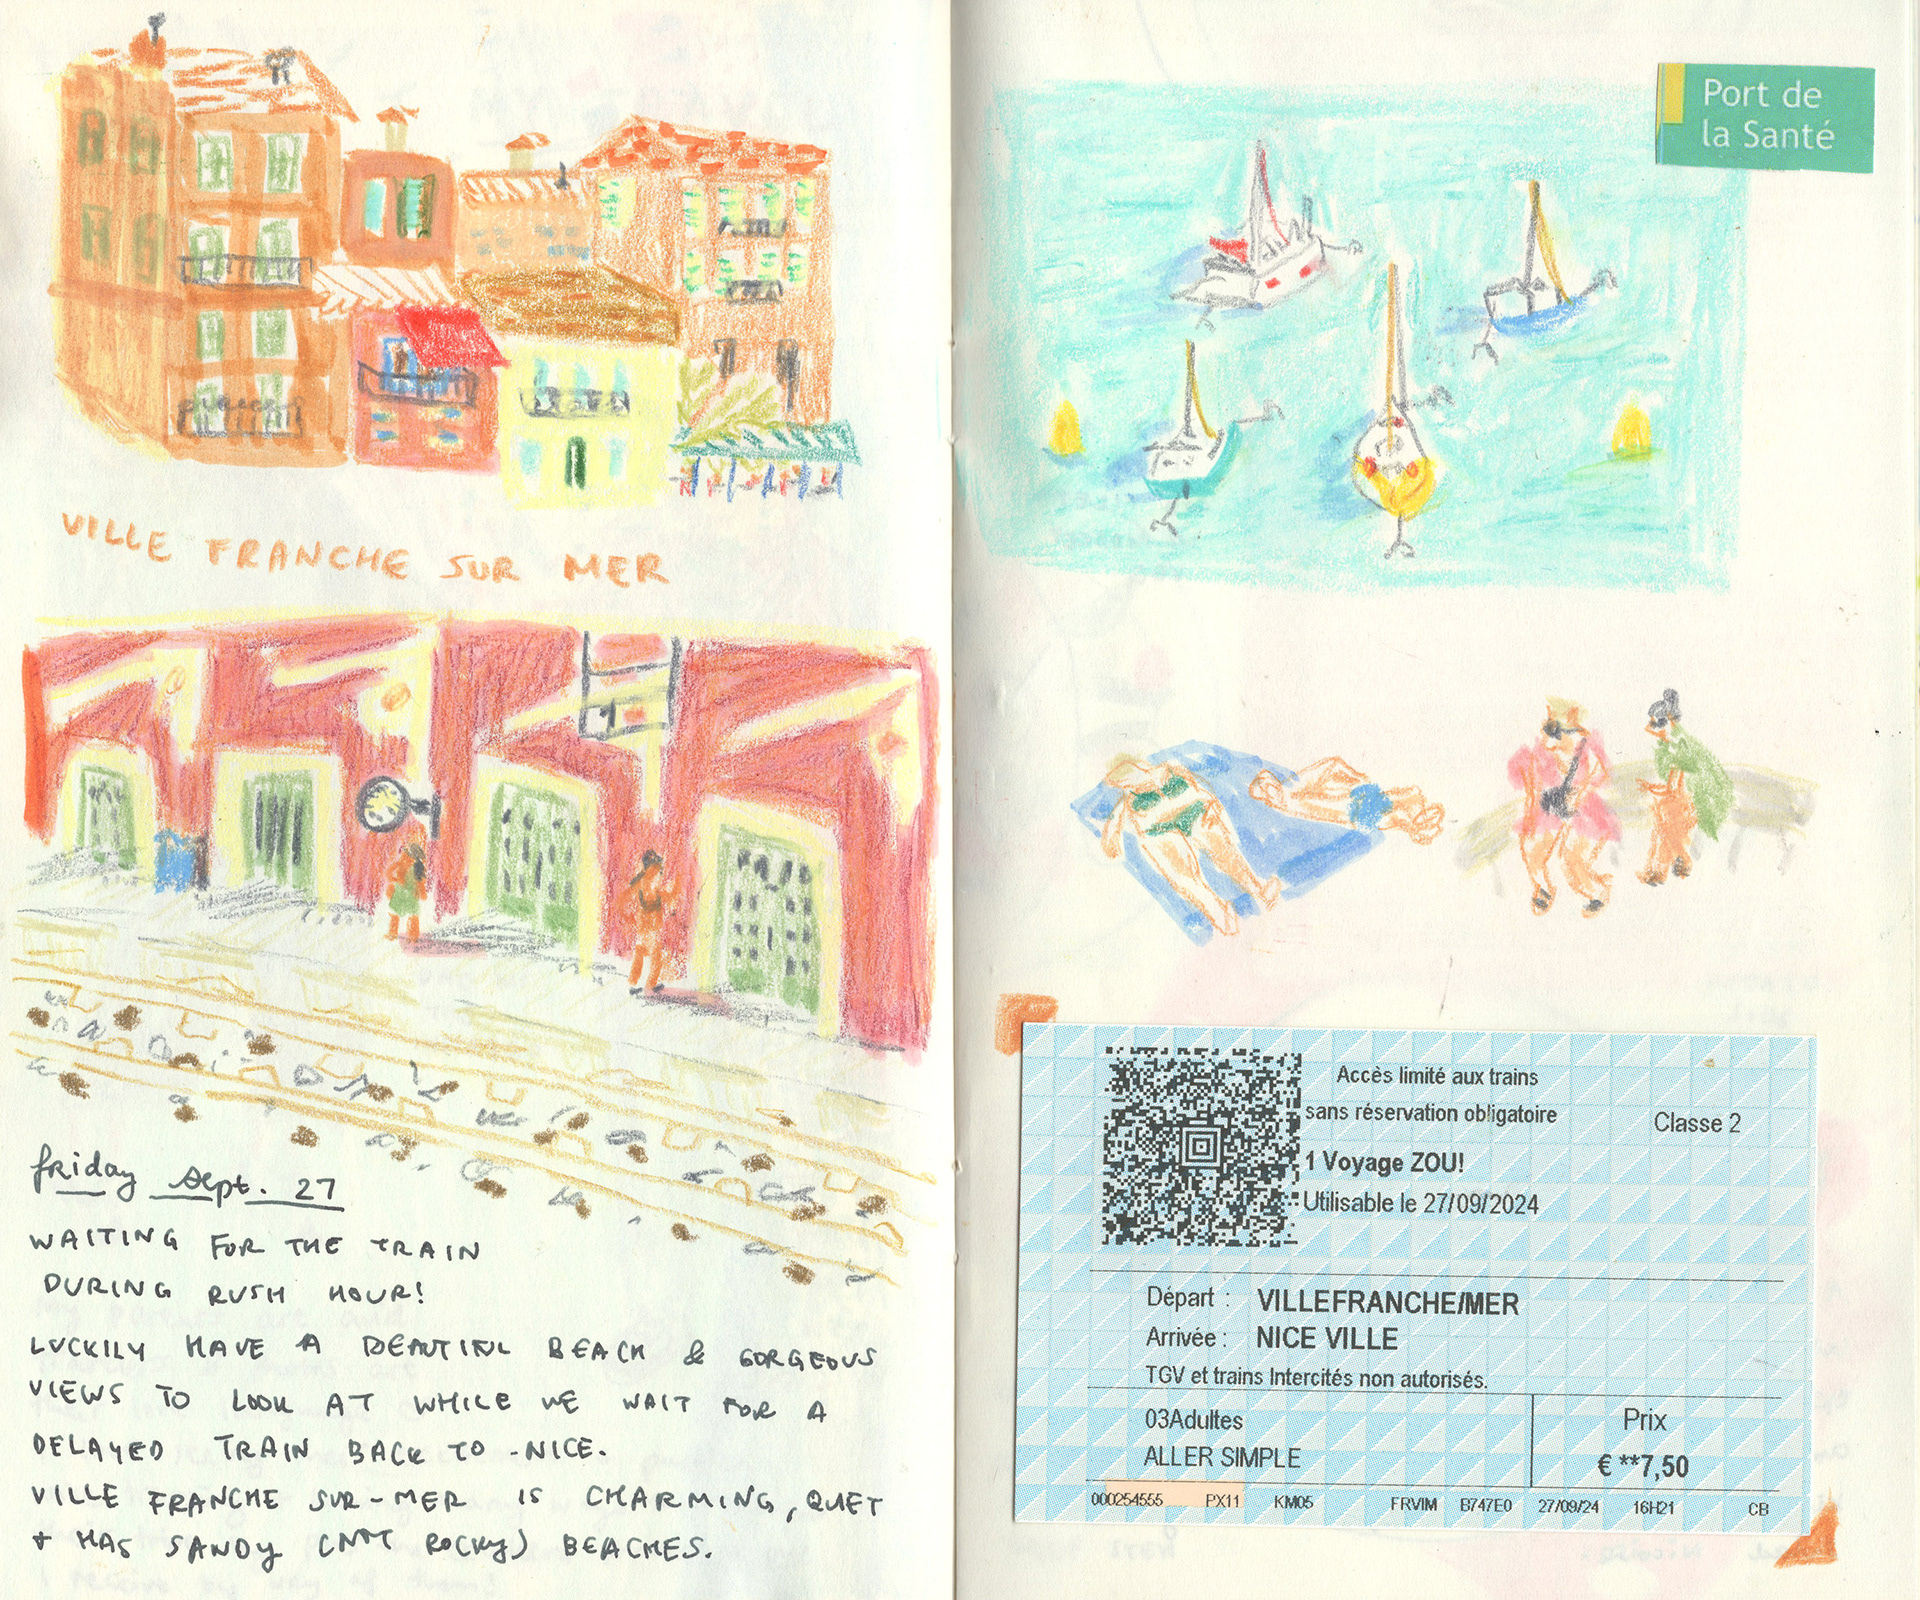 VILLE FRANCHE SUR MER
1
friday sept. 27
WAITING FOR THE TRAIN
DURING RUSH HOUR!
LUCKILY HAVE A BEAUTIFUL BEACH & GORGEOUS
VIEWS TO LOOK AT WHILE WE WAIT FOR A
DELAYED TRAIN BACK TO NICE.
VILLE FRANCHE SUR-MER IS CHARMING, QUET
+ HAS SANDY (NOT ROCKY) BEACHES.
Port de
la Santé
Accès limité aux trains
sans réservation obligatoire
Classe 2
1 Voyage ZOU!
Utilisable le 27/09/2024
Départ : VILLEFRANCHE/MER
Arrivée : NICE VILLE
TGV et trains Intercités non autorisés.
03Adultes
ALLER SIMPLE
Prix
€ **7,50
000254555 PX11 KM05 FRVIM B747E0 27/09/24 16H21 CB